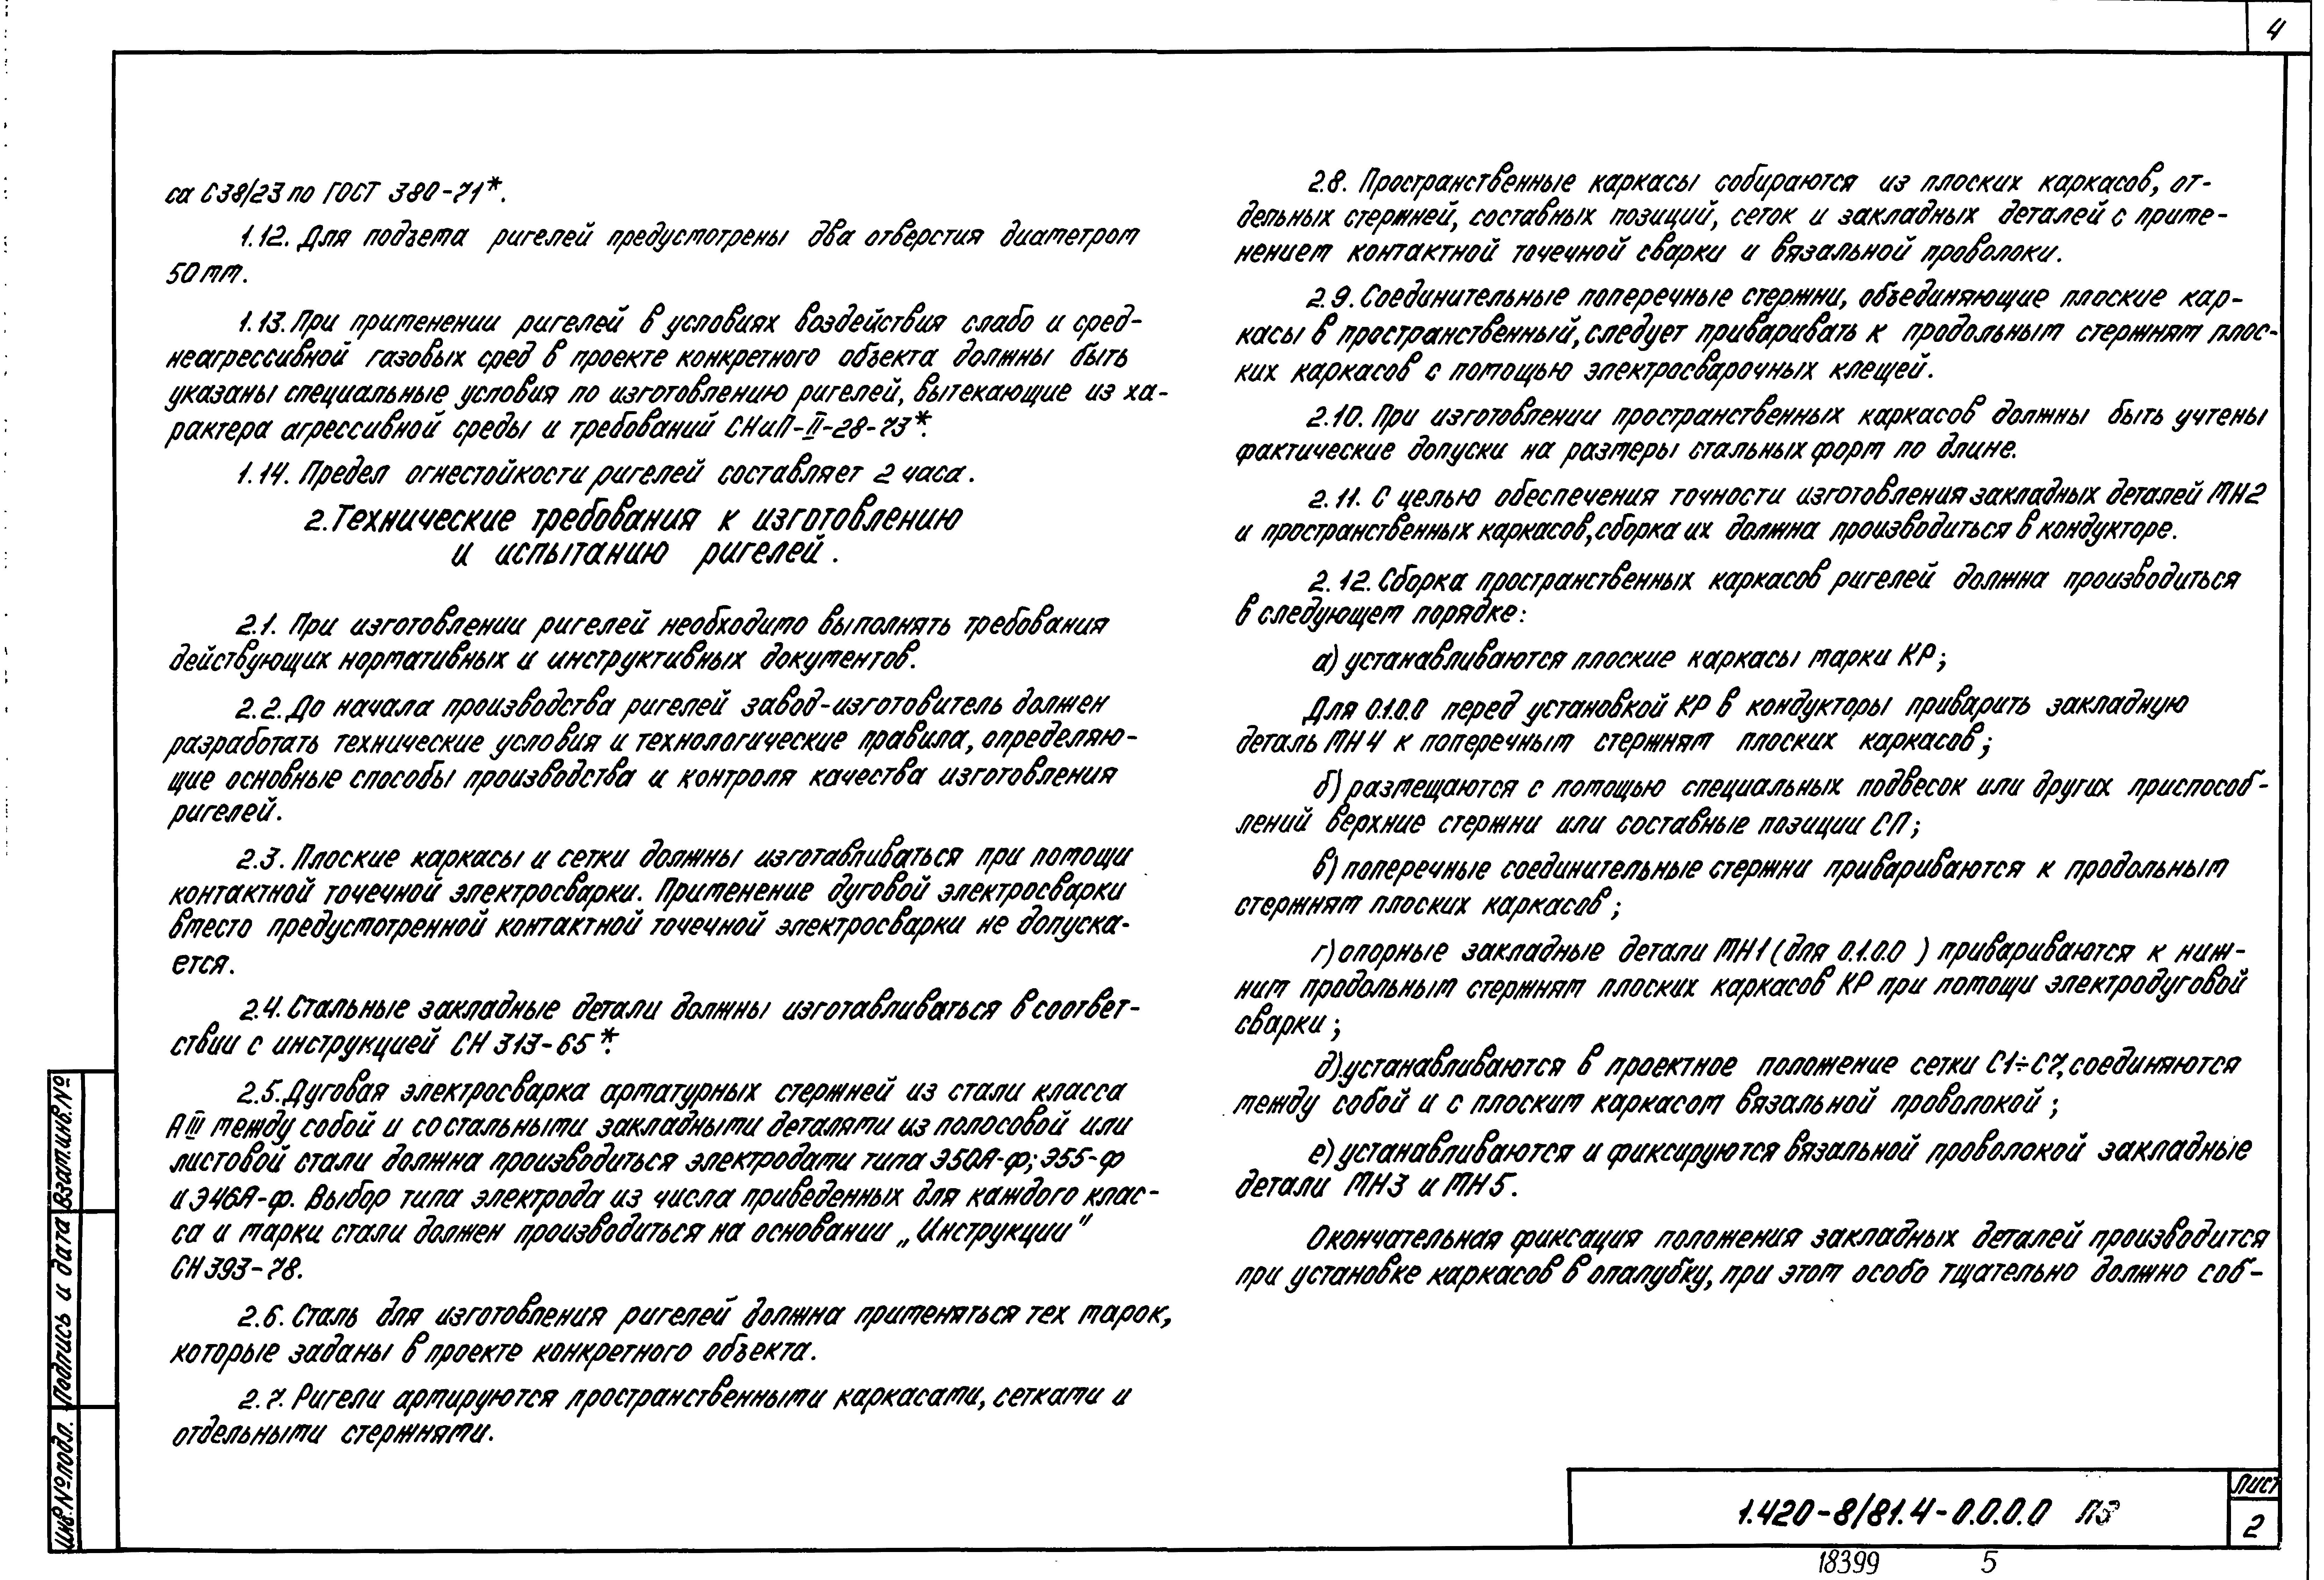 4
са С38/23 по ГОСТ 380-71*.
1.12. Для подъема ригелей предусмотрены два отверстия диаметром
50мм.
1.13. При применении ригелей в условиях воздействия слабо и сред-
неагрессивной газовых сред в проекте конкретного объекта должны быть
указаны специальные условия по изготовлению ригелей, вытекающие из ха-
рактера агрессивной среды и требований СНиП-II-28-73*.
1.14. Предел огнестойкости ригелей составляет 2 часа.
2. Технические требования к изготовлению
и испытанию ригелей.
2.1. При изготовлении ригелей необходимо выполнять требования
действующих нормативных и инструктивных документов.
2.2. До начала производства ригелей завод-изготовитель должен
разработать технические условия и технологические правила, определяю-
щие основные способы производства и контроля качества изготовления
ригелей.
2.3. Плоские каркасы и сетки должны изготавливаться при помощи
контактной точечной электросварки. Применение дуговой электросварки
вместо предусмотренной контактной точечной электросварки не допуска-
ется.
2.4. Стальные закладные детали должны изготавливаться в соответ-
ствии с инструкцией СН 313-65*.
2.5. Дуговая электросварка арматурных стержней из стали класса
АIII между собой и со стальными закладными деталями из полосовой или
листовой стали должна производиться электродами типа Э50А-ф; Э55-ф
и Э46А-ф. Выбор типа электрода из числа приведенных для каждого клас-
са и марки стали должен производиться на основании „Инструкции"
СН 393-78.
2.6. Сталь для изготовления ригелей должна применяться тех марок,
которые заданы в проекте конкретного объекта.
2.7. Ригели армируются пространственными каркасами, сетками и
отдельными стержнями.
2.8. Пространственные каркасы собираются из плоских каркасов, от-
дельных стержней, составных позиций, сеток и закладных деталей с приме-
нением контактной точечной сварки и вязальной проволоки.
2.9. Соединительные поперечные стержни, объединяющие плоские кар-
касы в пространственный, следует приваривать к продольным стержням плос-
ких каркасов с помощью электросварочных клещей.
2.10. При изготовлении пространственных каркасов должны быть учтены
фактические допуски на размеры стальных форм по длине.
2.11. С целью обеспечения точности изготовления закладных деталей МН2
и пространственных каркасов, сборка их должна производиться в кондукторе.
2.12. Сборка пространственных каркасов ригелей должна производиться
в следующем порядке:
а) устанавливаются плоские каркасы марки КР;
Для 0.1.0.0 перед установкой КР в кондукторы приварить закладную
деталь МН4 к поперечным стержням плоских каркасов;
б) размещаются с помощью специальных подвесок или других приспособ-
лений верхние стержни или составные позиции СП;
в) поперечные соединительные стержни привариваются к продольным
стержням плоских каркасов;
г) опорные закладные детали МН1 (для 0.1.0.0 ) привариваются к ниж-
ним продольным стержням плоских каркасов КР при помощи электродуговой
сварки;
д) устанавливаются в проектное положение сетки С1÷С7, соединяются
между собой и с плоским каркасом вязальной проволокой;
е) устанавливаются и фиксируются вязальной проволокой закладные
детали МН3 и МН5.
Окончательная фиксация положения закладных деталей производится
при установке каркасов в опалубку, при этом особо тщательно должно соб-
Инв.№подл. Подпись и дата Взам.инв.№
1.420-8/81.4-0.0.0.0 ПЗ
Лист
2
18399 5